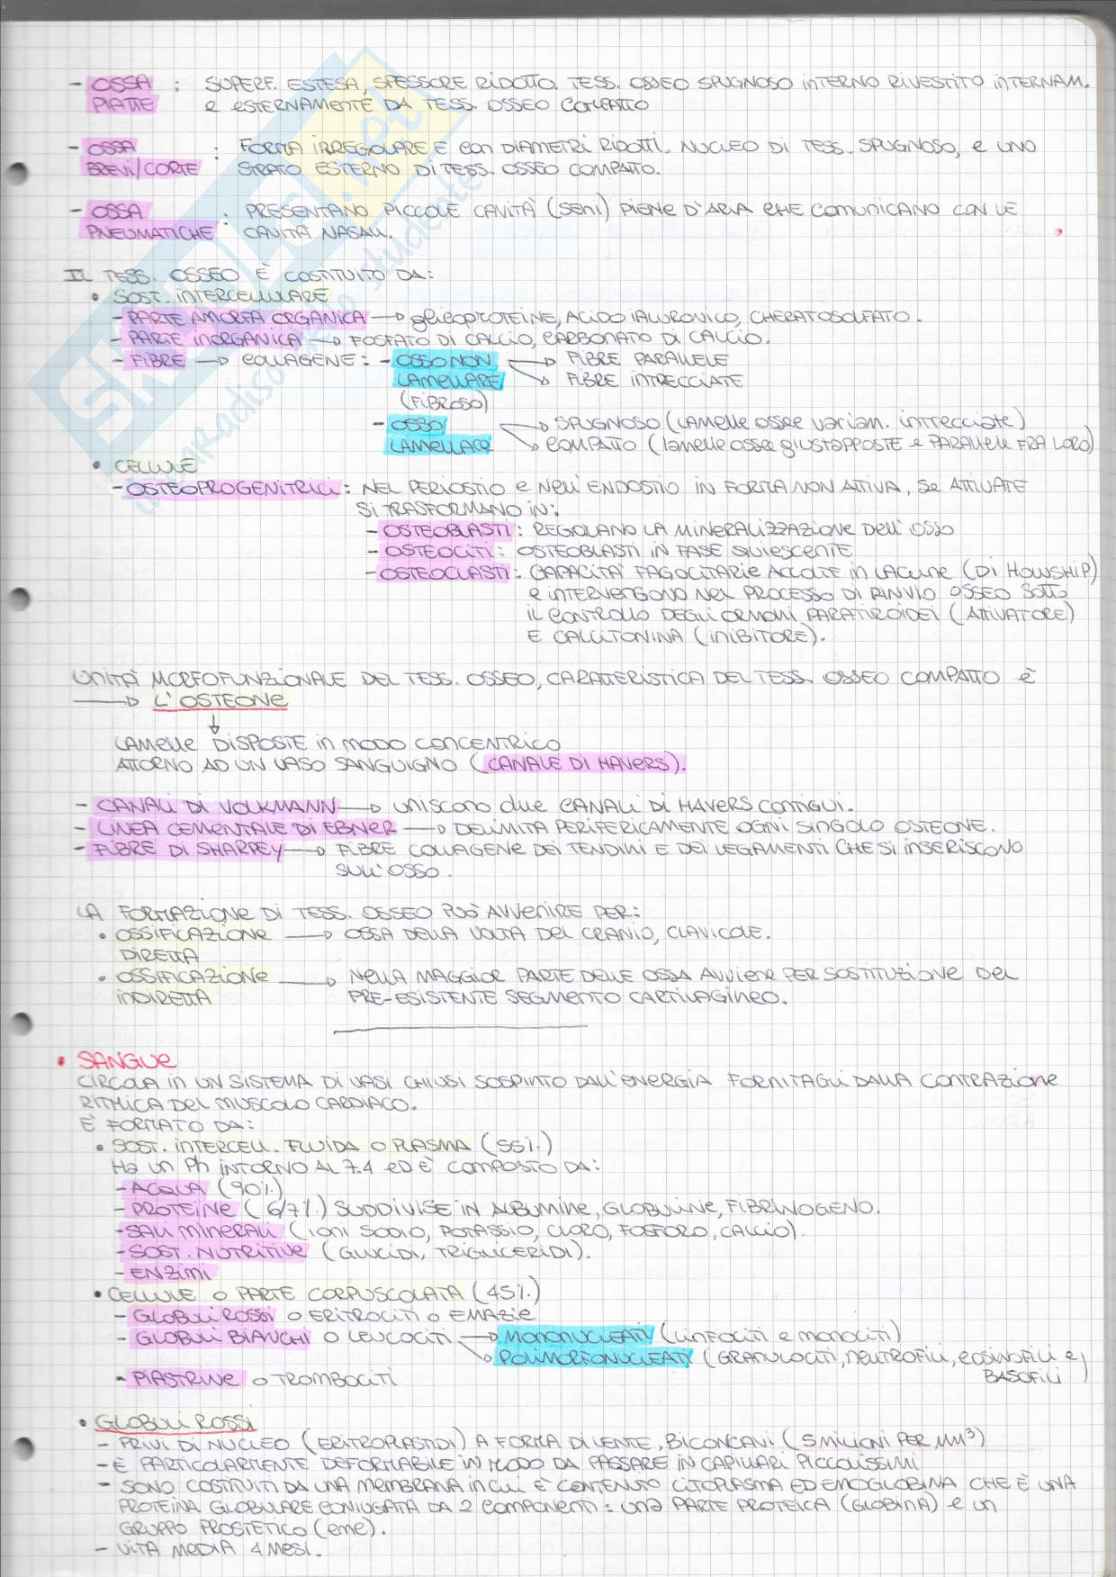 - OSSA : SUPERF. ESTESA, SPESSORE RIDOTTO. TESS. OSSEO SPUGNOSO INTERNO RIVESTITO INTERNAM.
PIATTE E ESTERNAMENTE DA TESS. OSSEO COMPATTO
- OSSA : FORMA IRREGOLARE E CON DIAMETRI RIDOTTI. NUCLEO DI TESS. SPUGNOSO, E UNO
BREVI/CORTE STRATO ESTERNO DI TESS. OSSEO COMPATTO.
- OSSA : PRESENTANO PICCOLE CAVITÀ (SENI) PIENE D'ARIA CHE COMUNICANO CON LE
PNEUMATICHE CAVITÀ NASALI.
IL TESS. OSSEO È COSTITUITO DA:
• SOST. INTERCELLULARE
- PARTE AMORFA ORGANICA → GLICOPROTEINE, ACIDO IALURONICO, CHERATOSOLFATO.
- PARTE INORGANICA → FOSFATO DI CALCIO, CARBONATO DI CALCIO.
- FIBRE → COLLAGENE: - OSSO NON → FIBRE PARALLELE
LAMELLARE → FIBRE INTRECCIATE
(FIBROSO)
- OSSO → SPUGNOSO (LAMELLE OSSEE VARIAM. INTRECCIATE)
LAMELLARE → COMPATTO (LAMELLE OSSEE GIUSTAPPOSTE E PARALLELE FRA LORO)
• CELLULE
- OSTEOPROGENITRICI: NEL PERIOSTIO E NELL'ENDOSTIO IN FORMA NON ATTIVA, SE ATTIVATE
SI TRASFORMANO IN:
- OSTEOBLASTI: REGOLANO LA MINERALIZZAZIONE DELL'OSSO
- OSTEOCITI: OSTEOBLASTI IN FASE QUIESCENTE
- OSTEOCLASTI: CAPACITÀ FAGOCITARIE ACCOLTE IN LACUNE (DI HOWSHIP)
E INTERVENGONO NEL PROCESSO DI RINVIO OSSEO SOTTO
IL CONTROLLO DEGLI ORMONI PARATIROIDEI (ATTIVATORE)
E CALCITONINA (INIBITORE).
UNITÀ MORFOFUNZIONALE DEL TESS. OSSEO, CARATTERISTICA DEL TESS. OSSEO COMPATTO È
→ L'OSTEONE
↓
LAMELLE DISPOSTE IN MODO CONCENTRICO
ATTORNO AD UN VASO SANGUIGNO (CANALE DI HAVERS).
- CANALI DI VOLKMANN → UNISCONO DUE CANALI DI HAVERS CONTIGUI.
- LINEA CEMENTALE DI EBNER → DELIMITA PERIFERICAMENTE OGNI SINGOLO OSTEONE.
- FIBRE DI SHARPEY → FIBRE COLLAGENE DEI TENDINI E DEI LEGAMENTI CHE SI INSERISCONO
SULL'OSSO.
LA FORMAZIONE DI TESS. OSSEO PUÒ AVVENIRE PER:
• OSSIFICAZIONE → OSSA DELLA VOLTA DEL CRANIO, CLAVICOLE.
DIRETTA
• OSSIFICAZIONE → NELLA MAGGIOR PARTE DELLE OSSA AVVIENE PER SOSTITUZIONE DEL
INDIRETTA PRE-ESISTENTE SEGMENTO CARTILAGINEO.
• SANGUE
CIRCOLA IN UN SISTEMA DI VASI CHIUSI SOSPINTO DALL'ENERGIA FORNITAGLI DALLA CONTRAZIONE
RITMICA DEL MUSCOLO CARDIACO.
È FORMATO DA:
• SOST. INTERCELL. FLUIDA O PLASMA (55%)
HA UN Ph INTORNO AL 7.4 ED È COMPOSTO DA:
- ACQUA (90%)
- PROTEINE (6/7%) SUDDIVISE IN ALBUMINE, GLOBULINE, FIBRINOGENO.
- SALI MINERALI (IONI SODIO, POTASSIO, CLORO, FOSFORO, CALCIO).
- SOST. NUTRITIVE (GLUCIDI, TRIGLICERIDI).
- ENZIMI
• CELLULE O PARTE CORPUSCOLATA (45%)
- GLOBULI ROSSI O ERITROCITI O EMAZIE
- GLOBULI BIANCHI O LEUCOCITI → MONONUCLEATI (LINFOCITI E MONOCITI)
→ POLIMORFONUCLEATI (GRANULOCITI, NEUTROFILI, EOSINOFILI E
BASOFILI)
- PIASTRINE O TROMBOCITI
• GLOBULI ROSSI
- PRIVI DI NUCLEO (ERITROPLASTIDI) A FORMA DI LENTE, BICONCAVI (5 MILIONI PER MM³)
- È PARTICOLARMENTE DEFORMABILE IN MODO DA PASSARE IN CAPILLARI PICCOLISSIMI
- SONO COSTITUITI DA UNA MEMBRANA IN CUI È CONTENUTO CITOPLASMA ED EMOGLOBINA CHE È UNA
PROTEINA GLOBULARE CONIUGATA DA 2 COMPONENTI: UNA PARTE PROTEICA (GLOBINA) E UN
GRUPPO PROSTETICO (EME).
- VITA MEDIA 4 MESI.